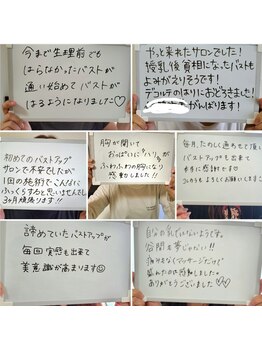 今まで生理前でも
はらなかったバストが
通い始めてバストが
はるようになりました♡
やっと来れたサロンでした!
授乳後貧相になったバストも
よみがえりそうです!
デコルテのはりにおどろきました!
がんばります!
初めてのバストアップ
サロンで不安でしたが
1回の施術でこんなに
ふっくらすると思いませんでした
3ヶ月頑張ります!!
胸が開いて
おっぱいに"ハリ"が
ふわふわの胸になり
感動しました!!
毎月、たのしく通わせて頂
バストアップも出来て
本当に感謝です
これからもよろしくお願いします
諦めていたバストアップが
毎回実感も出来て
美意識が高まります☺
自分の乳ではないようです。
谷間も夢じゃない!!
痛みもなくマッサージだけで
感動しました
ありがとうございました♡♡